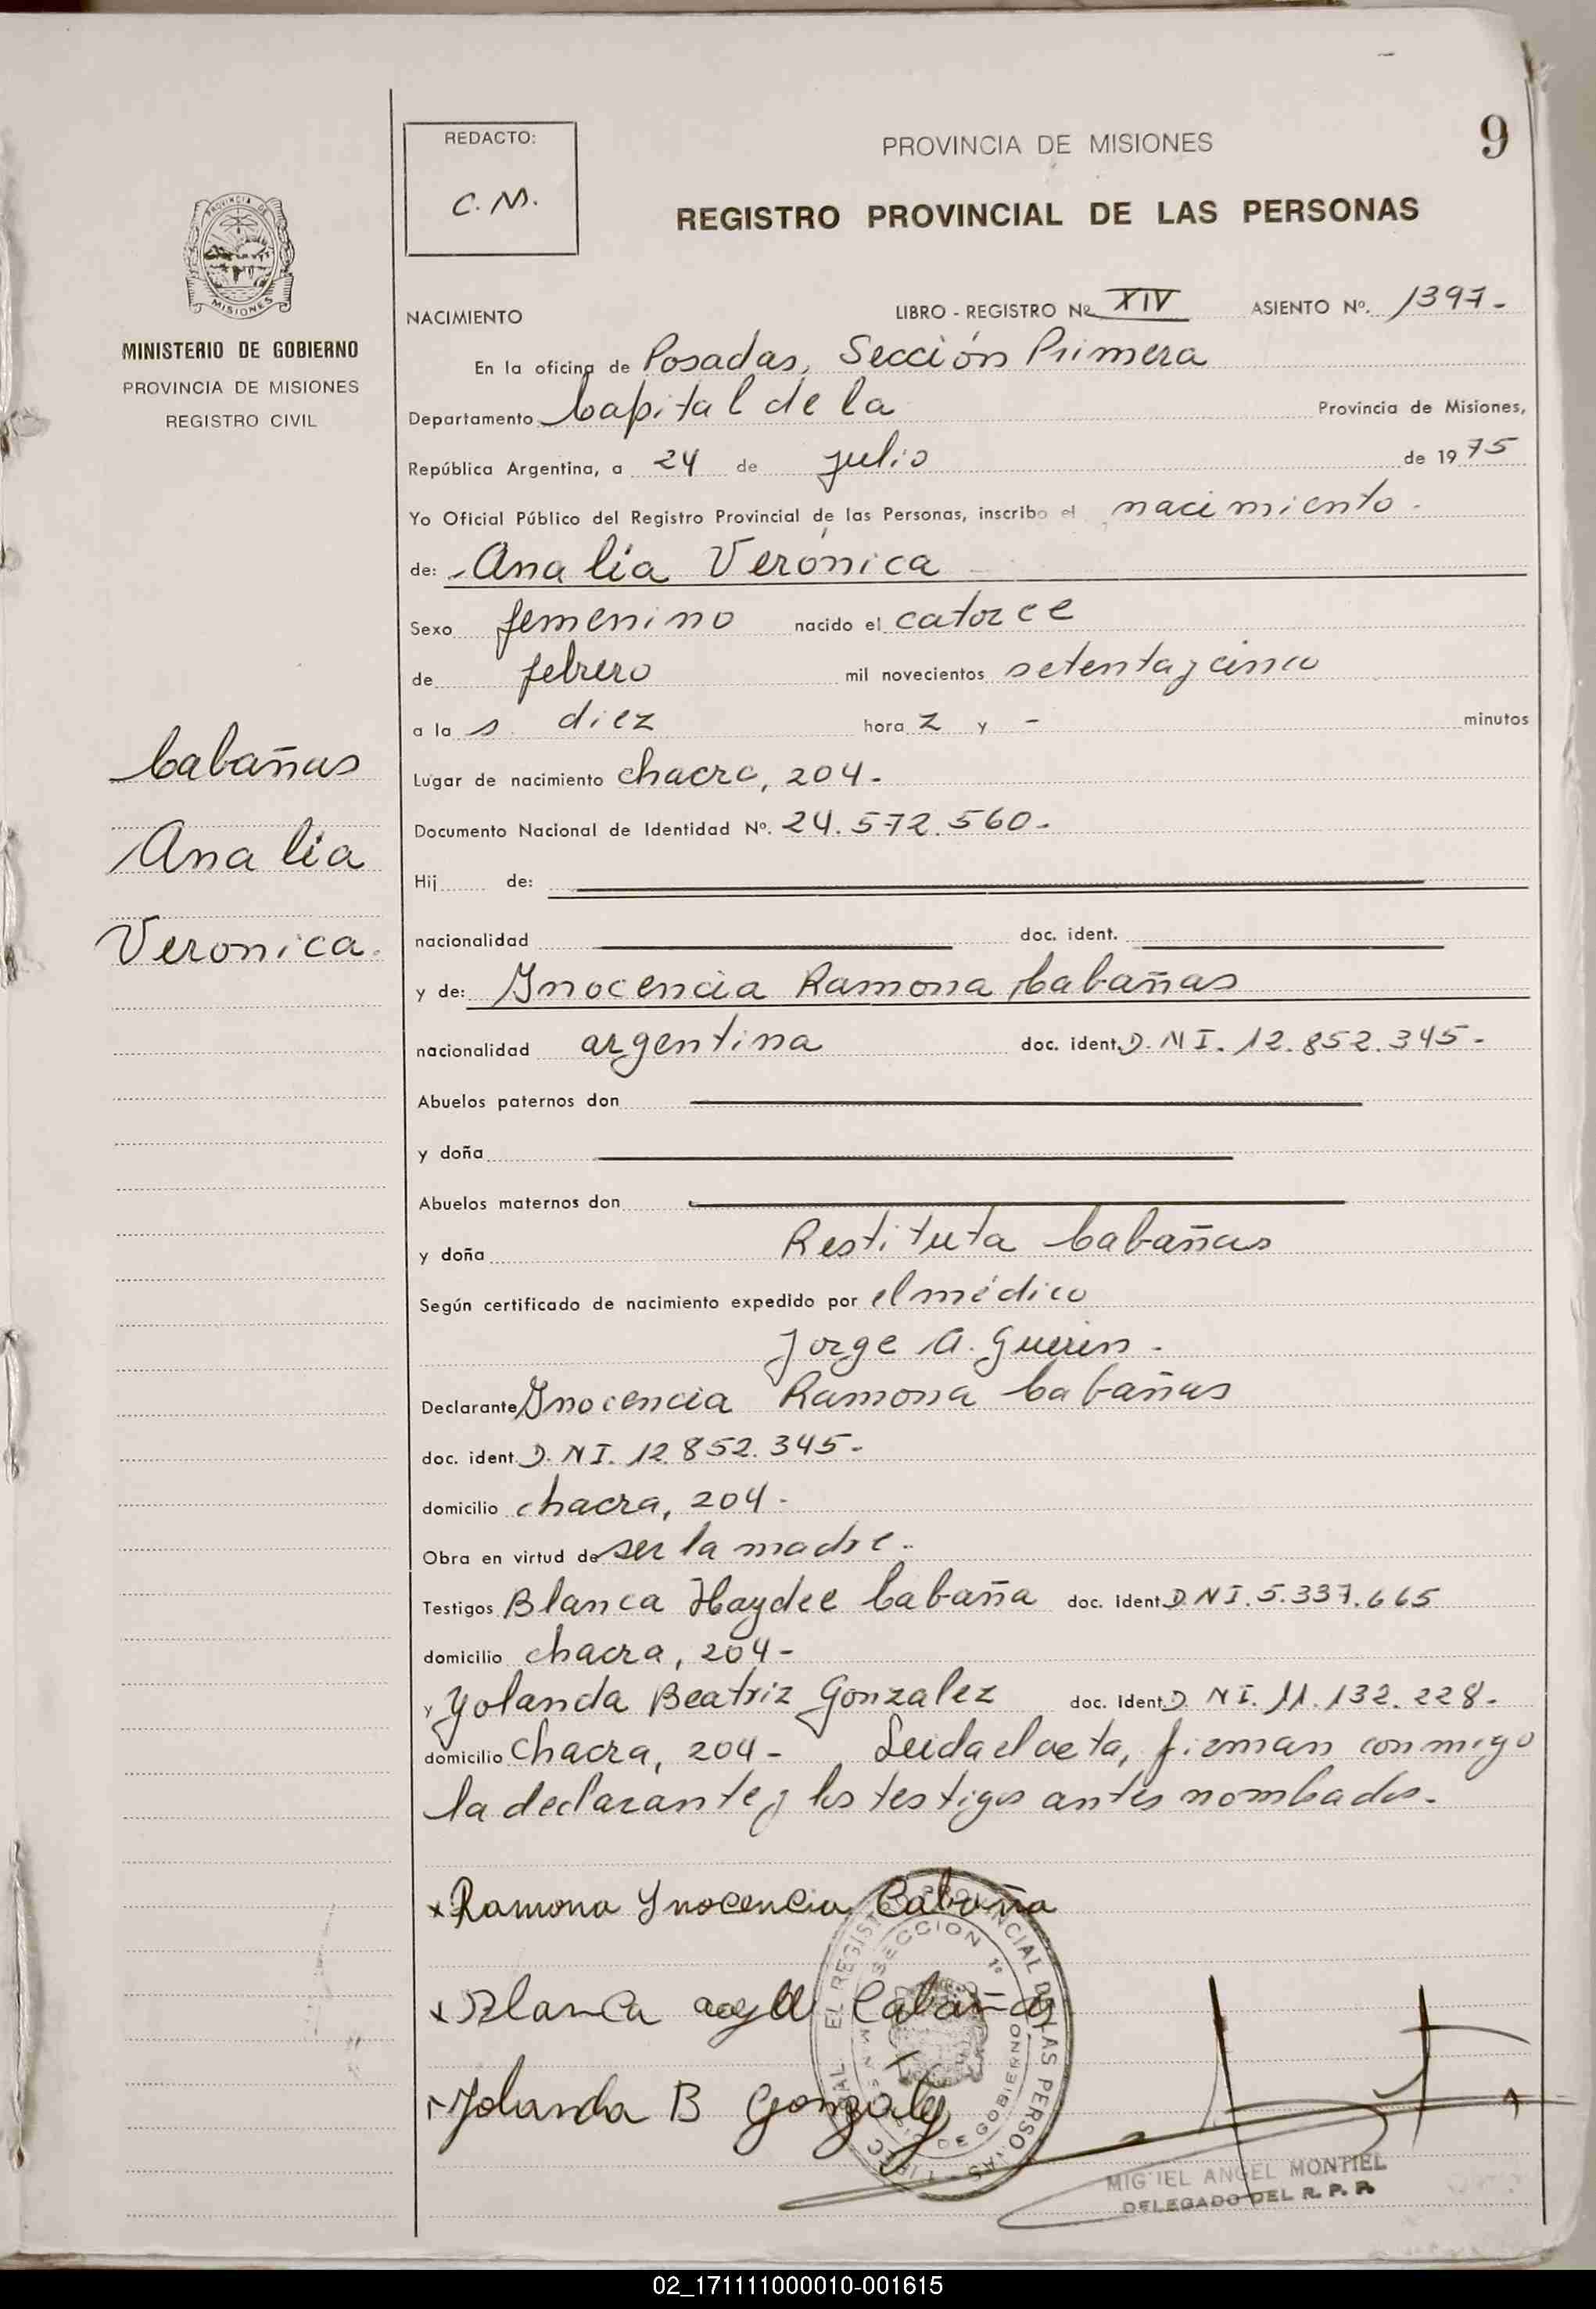 9
REDACTO:
C. M.
PROVINCIA DE MISIONES
REGISTRO PROVINCIAL DE LAS PERSONAS
PROVINCIA DE MISIONES
MINISTERIO DE GOBIERNO
PROVINCIA DE MISIONES
REGISTRO CIVIL
Cabañas
Analia
Veronica.
NACIMIENTO LIBRO - REGISTRO Nº XIV ASIENTO Nº. 1397.-
En la oficina de Posadas, Sección Primera
Departamento Capital de la Provincia de Misiones,
República Argentina, a 24 de julio de 1975
Yo Oficial Público del Registro Provincial de las Personas, inscribo el nacimiento.
de: -Analía Verónica
Sexo femenino nacido el catorce
de febrero mil novecientos setenta y cinco
a la s diez hora z y - minutos
Lugar de nacimiento chacra, 204-
Documento Nacional de Identidad Nº. 24.572.560-
Hij de:
nacionalidad doc. ident.
y de: Inocencia Ramona Cabañas
nacionalidad argentina doc. ident. D.N.I. 12.852.345-
Abuelos paternos don
y doña
Abuelos maternos don
y doña Restituta Cabañas
Según certificado de nacimiento expedido por el médico
Jorge A. Guerin.
Declarante Inocencia Ramona Cabañas
doc. ident. D.N.I. 12.852.345-
domicilio chacra, 204-
Obra en virtud de ser la madre.-
Testigos Blanca Haydee Cabaña doc. Ident. D.N.I. 5.337.665
domicilio chacra, 204-
y Yolanda Beatriz Gonzalez doc. Ident. D.N.I. 11.132.228-
domicilio Chacra, 204- Leida el acta, firman conmigo
la declarante y los testigos antes nombados.-
x Ramona Ynocencia Cabaña
x Blanca Cabaña
Yolanda B Gonzalez
EL REGISTRO PROVINCIAL DE LAS PERSONAS
SECCION 1ª
DE GOBIERNO
MIGUEL ANGEL MONTIEL
DELEGADO DEL R. P. P.
02_171111000010-001615